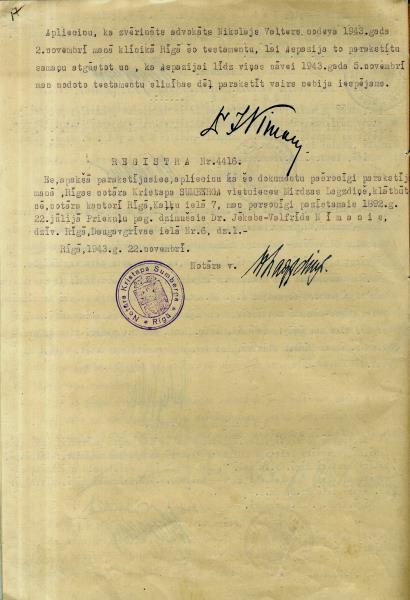 Apliecinu, ka zvērināts advokāts Nikolajs Valters nodeva 1943.gada
2.novembrī manā klīnikā Rīgā šo testamentu, lai Aspazija to parakstītu
samaņu atgūstot un , ka Aspazijai līdz viņas nāvei 1943.gada 5.novembrī
man nodoto testamentu slimības dēļ parakstīt vairs nebija iespējams.
REGISTRA Nr.4416.
Es,apakšā parakstījusies,apliecinu ka šo dokumentu pašrocīgi parakstīj
manā ,Rīgas notāra Kristapa SUMBERGA vietnieces Mirdzas Lagzdiņš,klātbūt
nē,notāra kantorī Rīgā,Kaļķu ielā 7, man personīgi pazīstamais 1892.g.
22.jūlijā Priekuļu pag. dzimušais Dr. Jēkabs-Valfrids Nīmanis,
dzīv. Rīgā,Daugavgrīvas ielā Nr.6, dz.1.-
Rīgā,1943.g. 22.novembrī.
Notāra v.
Notārs Kristaps Sumbergs * Rīgā *